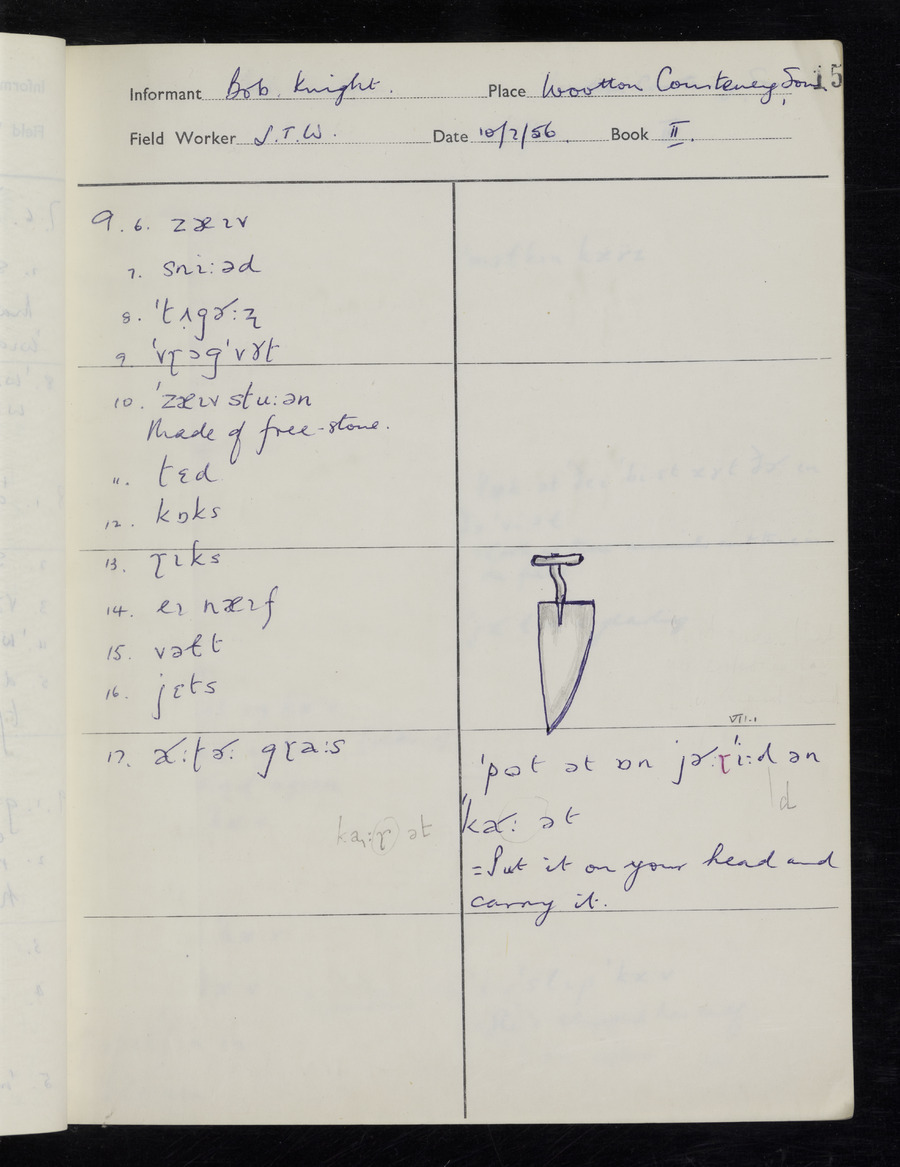 15
Informant Bob Knight. Place Wootton Courtenay, Som.
Field Worker S.T.W. Date 10/2/56. Book II.
9. 6. zæɪv
7. snɪ:əd
8. 'tʌgɚ:ʐ
9. 'vɽɔg'vɤt
10. 'zæɪv stu:ən
Made of free-stone.
11. tɛd
12. kɒks
13. ɽɪks
14. eɪ næɪf
15. vəɫt
16. jɛts
VII.1
17. æ:ʈɚ: gɽa:s
'pɷt ət ɒn jɚ:ɽ'i:d ən
d
ka:ɽ ət
'ka: ət
=Put it on your head and
carry it.